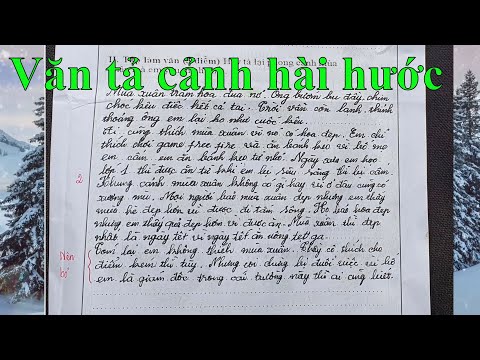 Văn tả cảnh hài hước
II. Tập làm văn (điểm) Hãy tả lại phong cảnh
Mùa xuân trăm hoa đua nở. Ong bướm bu đầy, chim
chóc kêu điếc hết cả tai. Trời vẫn còn lạnh, thỉnh
thoảng ông em lại ho như cuốc kêu.
Ai cũng thích mùa xuân vì nó có hoa đẹp. Em chỉ
thích chơi game free fire và ăn bánh kẹo vì bố mẹ
em cấm em ăn bánh kẹo từ nhỏ. Ngày xưa em học
lớp 1 thì được ăn từ khi em bị sâu răng thì bị cấm.
Phong cảnh mùa xuân không có gì hay vì ở đâu cũng có
sương mù. Mọi người bảo mùa xuân đẹp nhưng em thấy
mùa hè đẹp hơn vì được đi tắm sông. Họ bảo hoa đẹp
nhưng em thấy quả đẹp hơn vì được ăn. Mùa xuân thì đẹp
nhất là ngày tết vì ngày tết ăn uống tẹt ga.
Tóm lại em không thích mùa xuân. Thầy có thích cho
điểm kém thì tùy. Nhưng coi chừng bị đuổi việc vì bố
em là giám đốc trong cái trường này thì ai cũng biết.
2